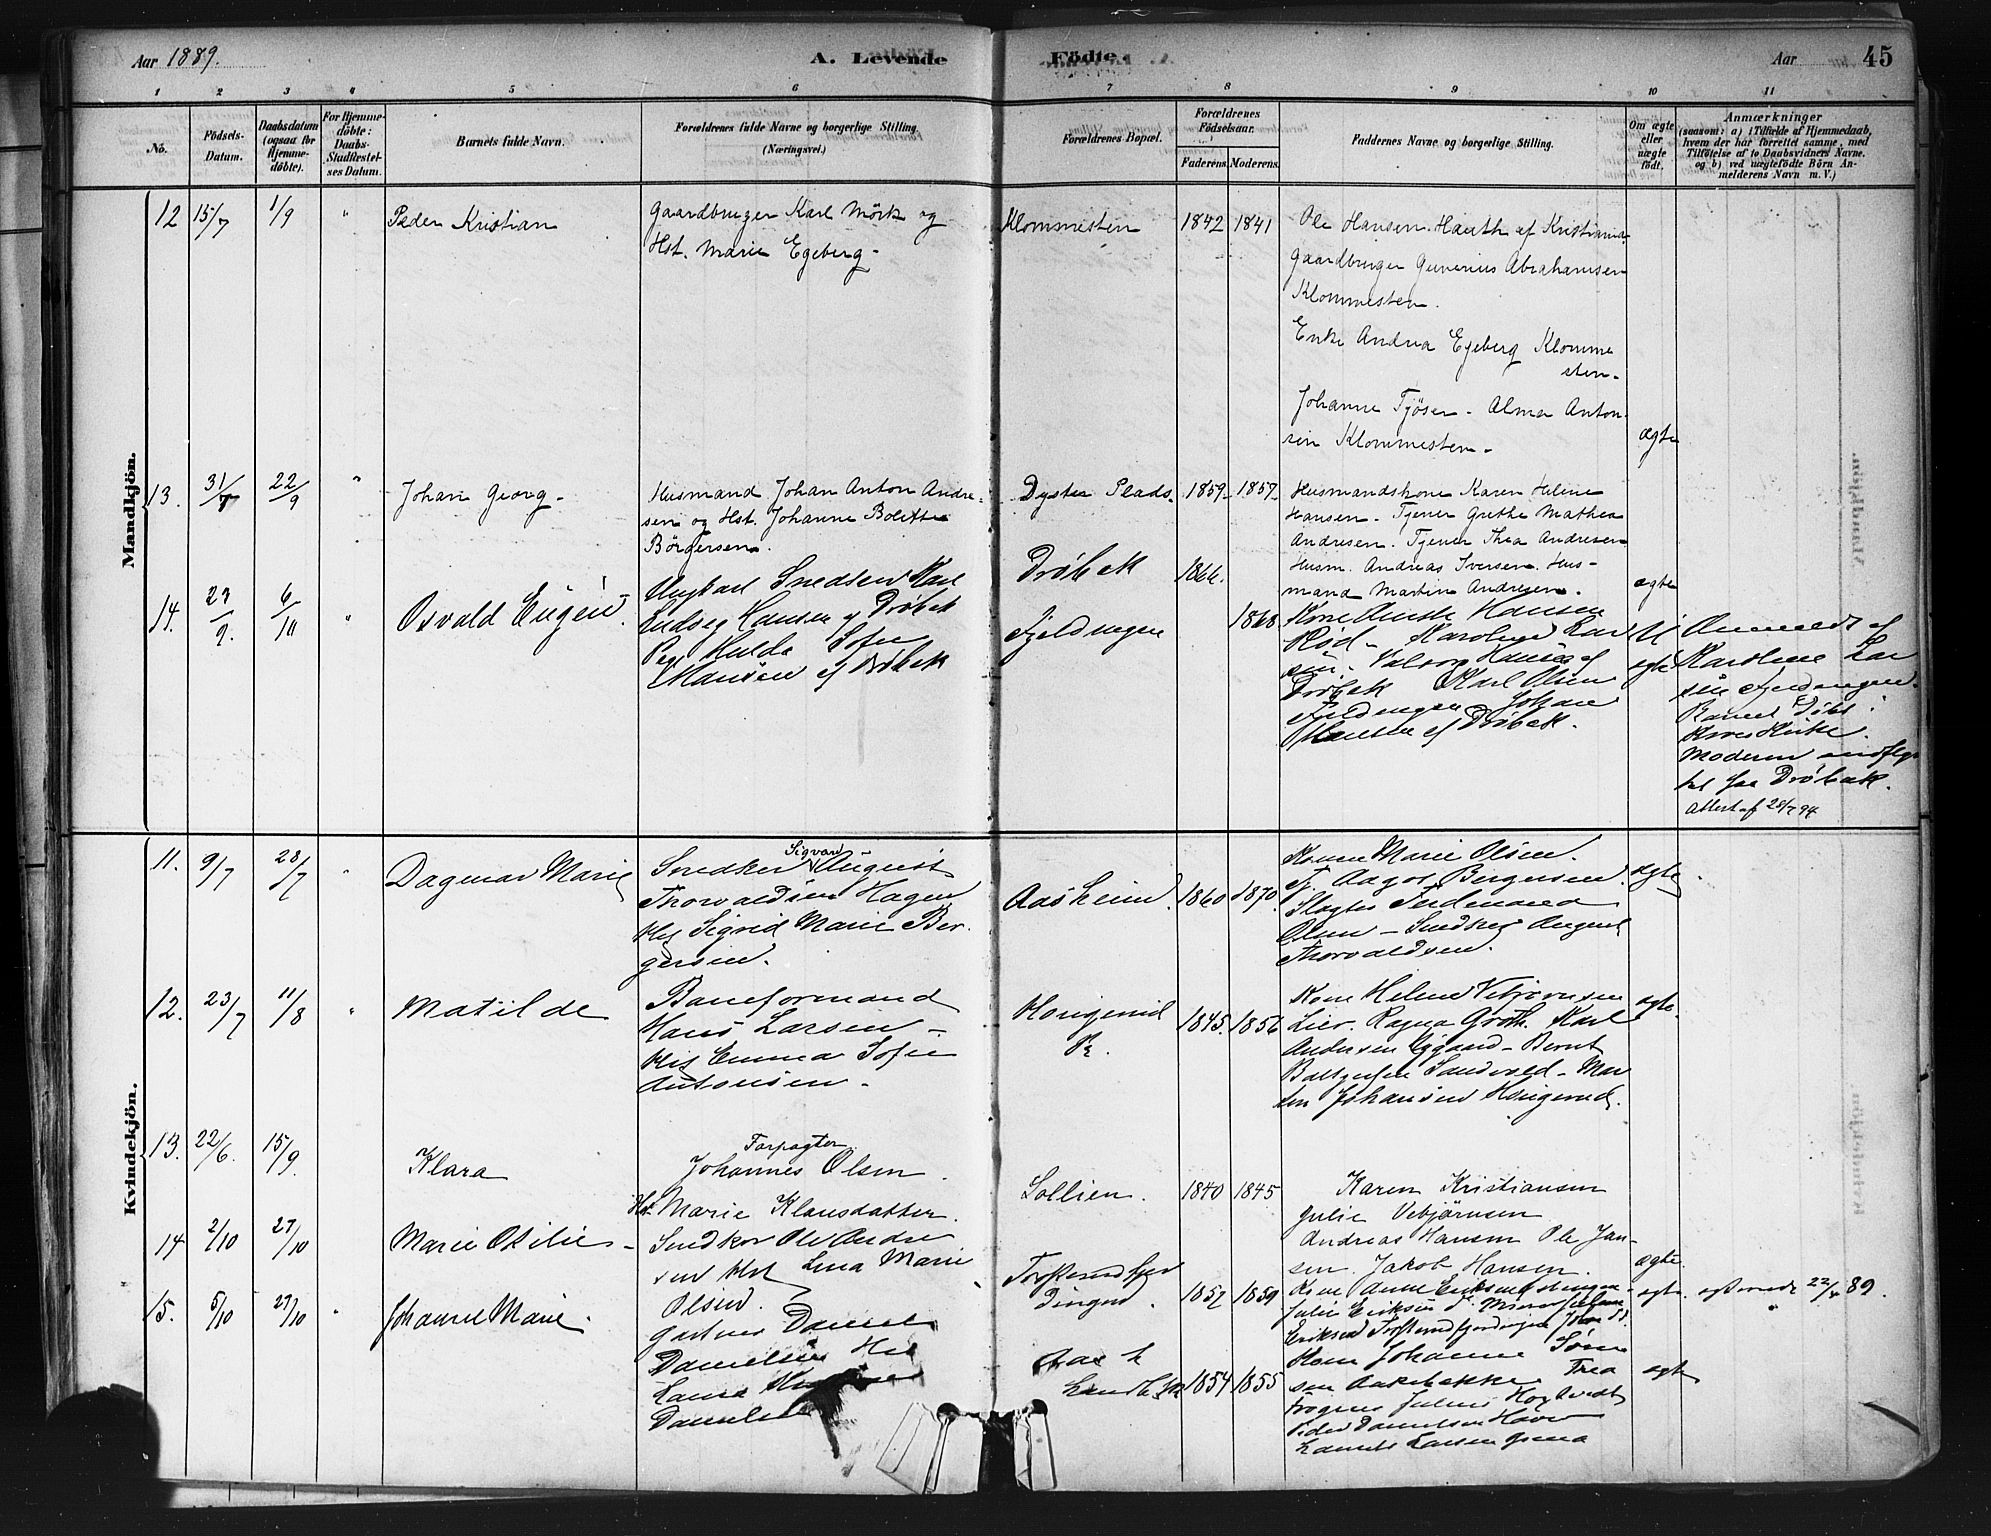 Aar 1889.
A. Levende
Fødte.
Aar
45
1 2 3 4 5 6 7 8 9 10 11
No.
Födsels-
Datum.
Daabsdatum
(ogsaa for
Hjemme-
døbte).
For Hjemme-
døbte:
Daabs-
Stadfæstel-
ses Datum.
Barnets fulde Navn.
Forældrenes fulde Navne og borgerlige Stilling.
(Næringsvei.)
Forældrenes Bopæl.
Forældrenes
Födselsaar.
Faderens.
Moderens.
Faddernes Navne og borgerlige Stilling.
Om ægte
eller
uægte
født.
Anmærkninger
(saasom: a) i Tilfælde af Hjemmedaab,
hvem der har forrettet samme, med
Tilføielse af to Daabsvidners Navne,
og b) ved uægtefødte Börn An-
melderens Navn m. V.)
Mandkjön.
12 15/7 1/9 " Peder Kristian
Gaardbruger Karl Mörk og
Hst. Marie Egeberg.
Klommesten 1842 1841
Ole Hansen Hauth af Kristiania
Gaardbruger Gunerius Abrahamsen
Klommesten.
Enke Andrea Egeberg Klomme
sten.
Johanne Tjöser. Alma Anton-
sen Klommesten.
ægte
13. 31/7 22/9 " Johan Georg.
Husmand Johan Anton Andre-
sen og Hst. Johanne Bolette
Börgersen.
Dyster Plads. 1859 1857
Husmandskone Karen Helene
Hansen. Tjener Grethe Mathea
Andresen. Tjener Thea Andresen
Husm. Andreas Iversen. Hus-
mand Martin Andresen.
ægte
14. 29/9. 6/10 " Osvald Eugen
Ungkarl Snedker Karl
Ludvig Hansen af Drøbak
Pige Hulda Sofie
Hansen af Drøbak
Drøbak
Fjeldengen
1866. 1868
Kone Hansen
Rød - Karoline Lar
sen. Hansen af
Drøbak Karl Olsen
Fjeldengen Johan
Hansen af Drøbak.
U
ægte
Anmeldt af
Karoline Lar
sen Fjeldengen.
Barnet Døbt i
Kroer Kirke.
Moderen
paa Drøbak.
Attest af 28/7 94
Kvindekjön.
11. 9/7 28/7 " Dagmar Marie
Snedker Sigvard August
Thorvaldsen Hagen
Hst Sigrid Marie Ber-
gersen.
Aasheim. 1860 1870.
Kone Marie Olsen.
Tj. Aagot Bergersen.
Slagter Ferdinand
Olsen - Snedker August
Thorvaldsen.
ægte
12. 23/7 11/8 " Matilde
Baneformand
Hans Larsen -
Hst Emma Sofie
Antonsen.
1845. 1856
Kone Helene Vebjørnsen
Lier. Ragna Groth. Karl
Andersen Eggaard - Bernt
Sandvold - Mar
tin Johansen
ægte.
13. 22/6. 15/9. Klara
Forpagter
Johannes Olsen.
Hst. Marie Klausdatter.
Sollien. 1840 1845
Karen Kristiansen
Julie Vebjörnsen
Andreas Hansen Ole Jan-
sen. Jakob Hansen.
ægte.
14 2/10 27/10 Marie Otilie -
Snedker Ole Andre
sen Hst Lina Marie
Olsen.
1857 1859
Kone Anne Eriksen
Julie Eriksen
Eriksen
ægte. 22/ 89.
15. 5/10 27/10 " Johanne Marie.
Gartner Daniel
Danielsen Hst
Laura
Danielsen
Aas h
1854 1855
Kone Johanne Søren
sen Aakebakke Thea
Julius Hogkvedt
Peder Danielsen
Larsen
ægte